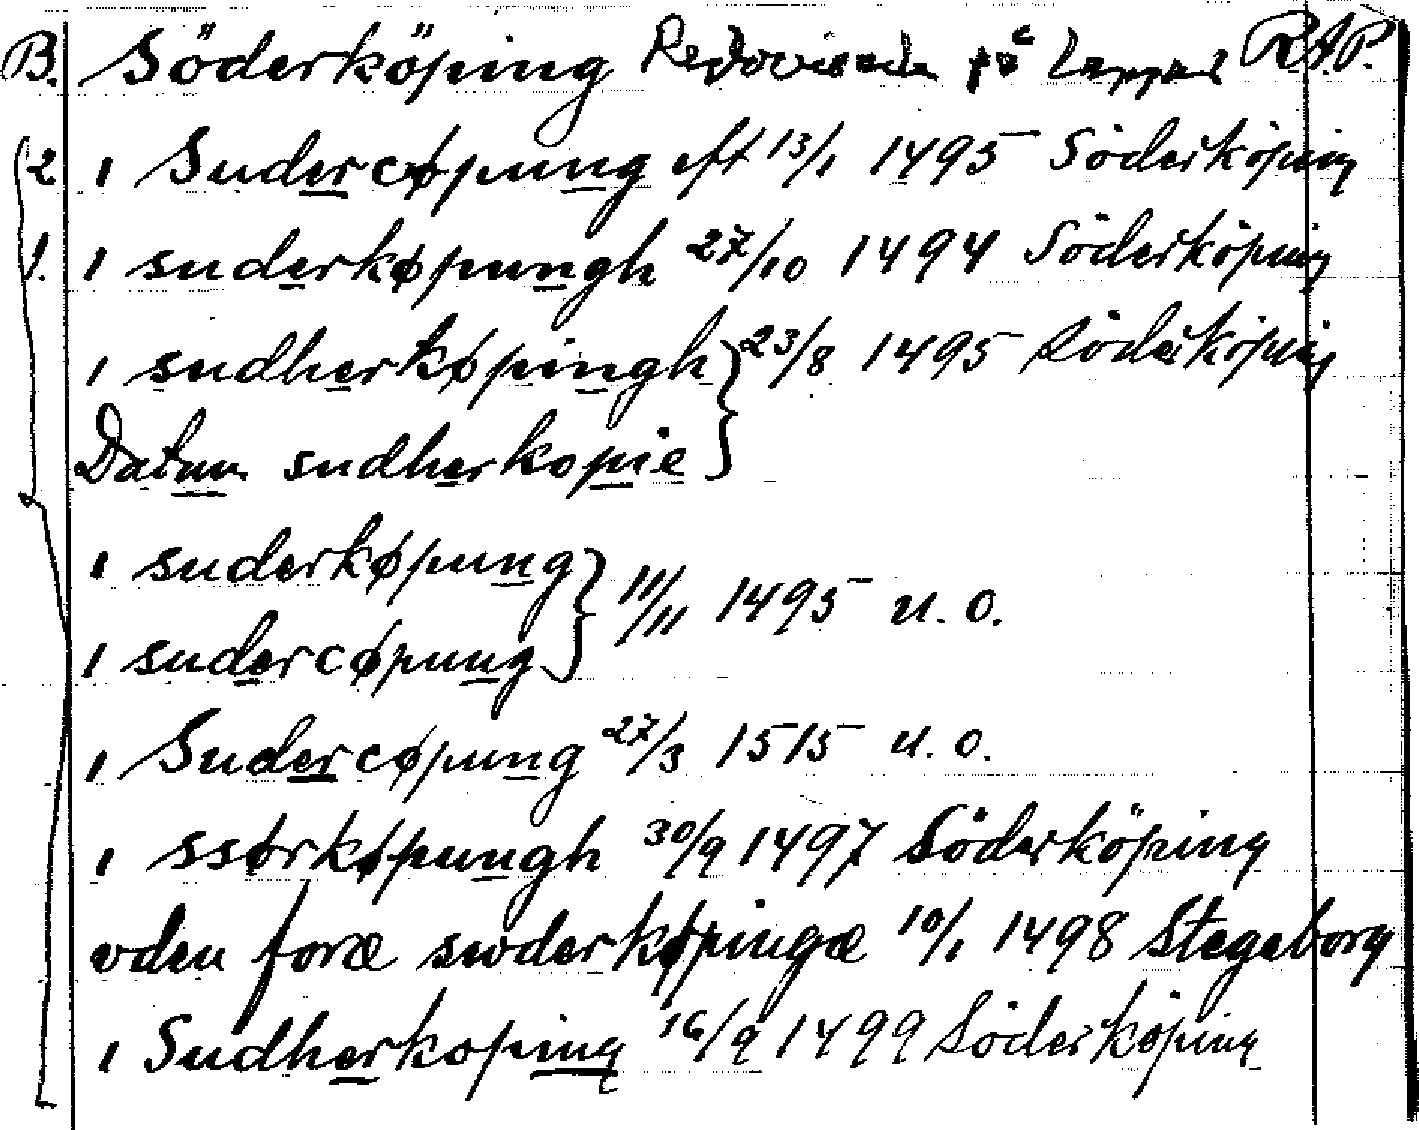 B. Söderköping Redovisade på lappar RAP.
2 i Sudercøpung eft 13/1 1495 Söderköping
1. i suderkøpungh 27/10 1494 Söderköping
i sudherkøpingh } 23/8 1495 Söderköping
Datum sudherkopie
i suderkøpung } 11/11 1495 u. o.
i sudercøpung
i Sudercøpung 27/3 1515 u. o.
i ssørkøpungh 30/9 1497 Söderköping
vden foræ swderkøpingæ 10/1 1498 Stegeborg
i Sudherkoping 16/9 1499 Söderköping